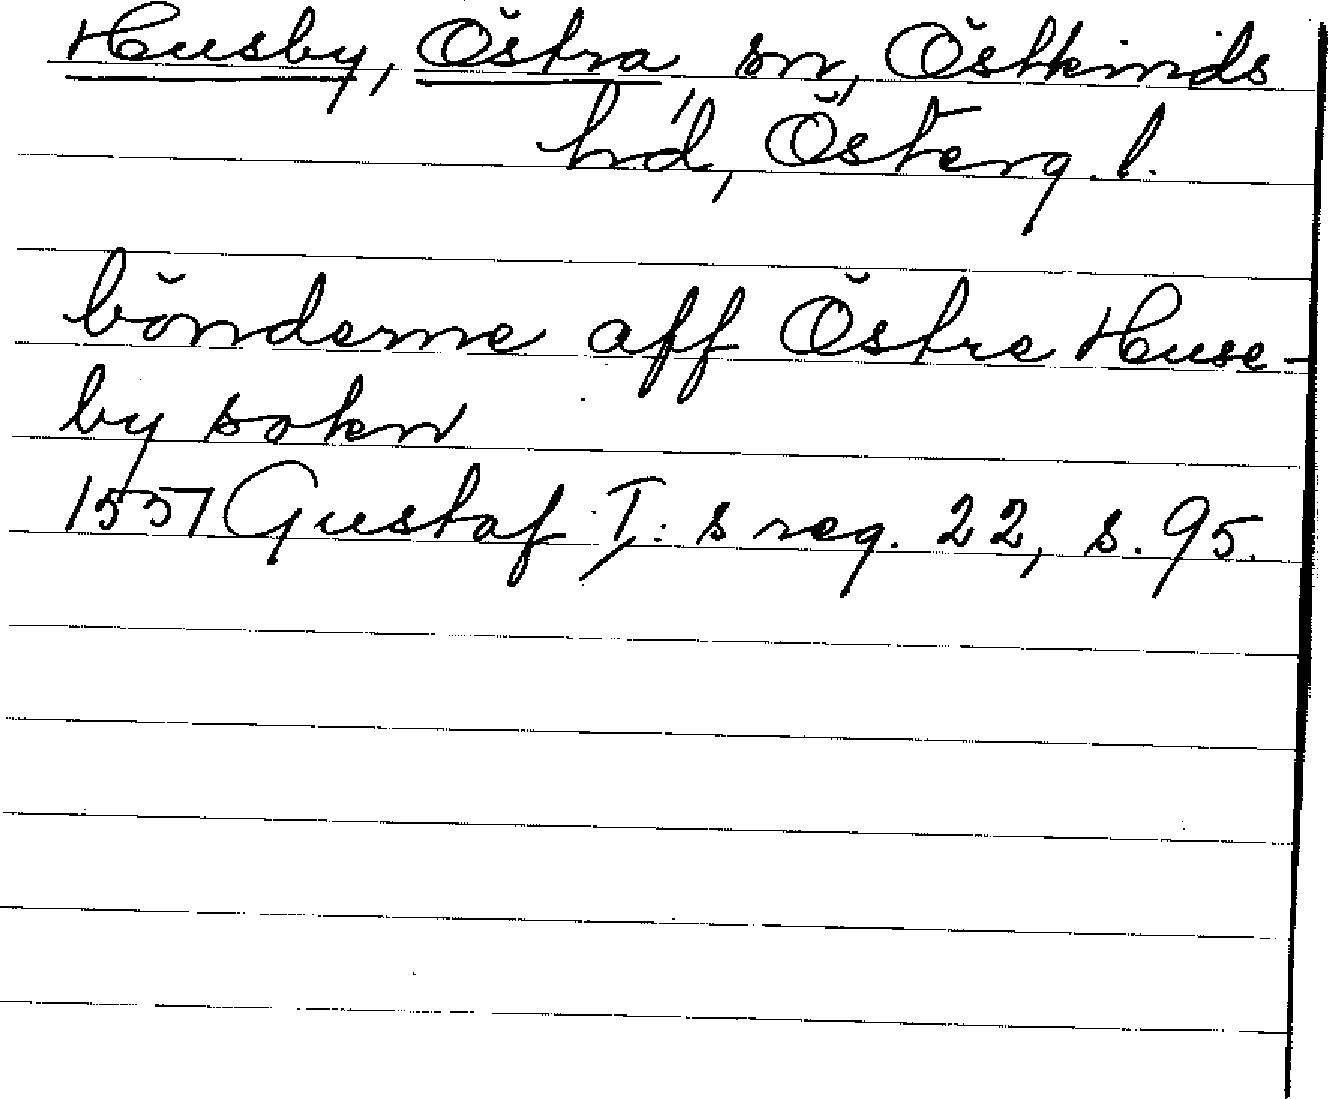 Husby, Östra, sn, Östkinds
hd, Österg. l.
bönderne aff Östre Huse-
by sokn
1551 Gustaf I:s reg. 22, s. 95.